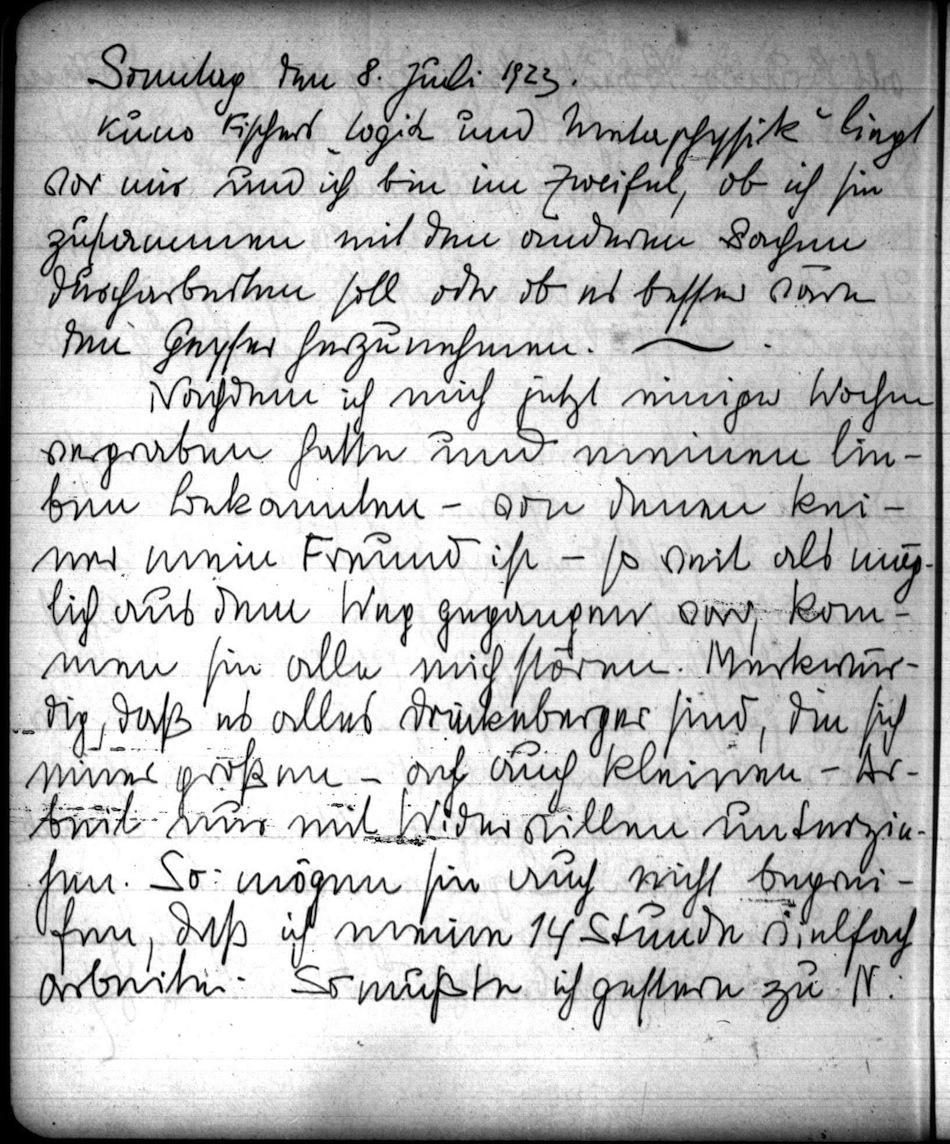 Sonntag den 8. Juli 1923.
Kuno Fischers "Logik und Metaphysik" liegt
vor mir und ich bin im Zweifel, ob ich sie
zusammen mit den anderen Sachen
durcharbeiten soll oder ob es besser wäre
den Geyser herzunehmen.
Nachdem ich mich jetzt einige Wochen
vergraben hatte und meinen lie-
ben Bekannten – von denen kei-
ner mein Freund ist – so weit als mög-
lich aus dem Weg gegangen war, kom-
men sie alle mich stören. Merkwür-
dig, daß es alles Drückeberger sind, die sich
einer großen – ach auch kleinen – Ar-
beit nur mit Widerwillen unterzie-
hen. So mögen sie auch nicht begrei-
fen, daß ich meine 14 Stunde vielfach
arbeite. So mußte ich gestern zu N.